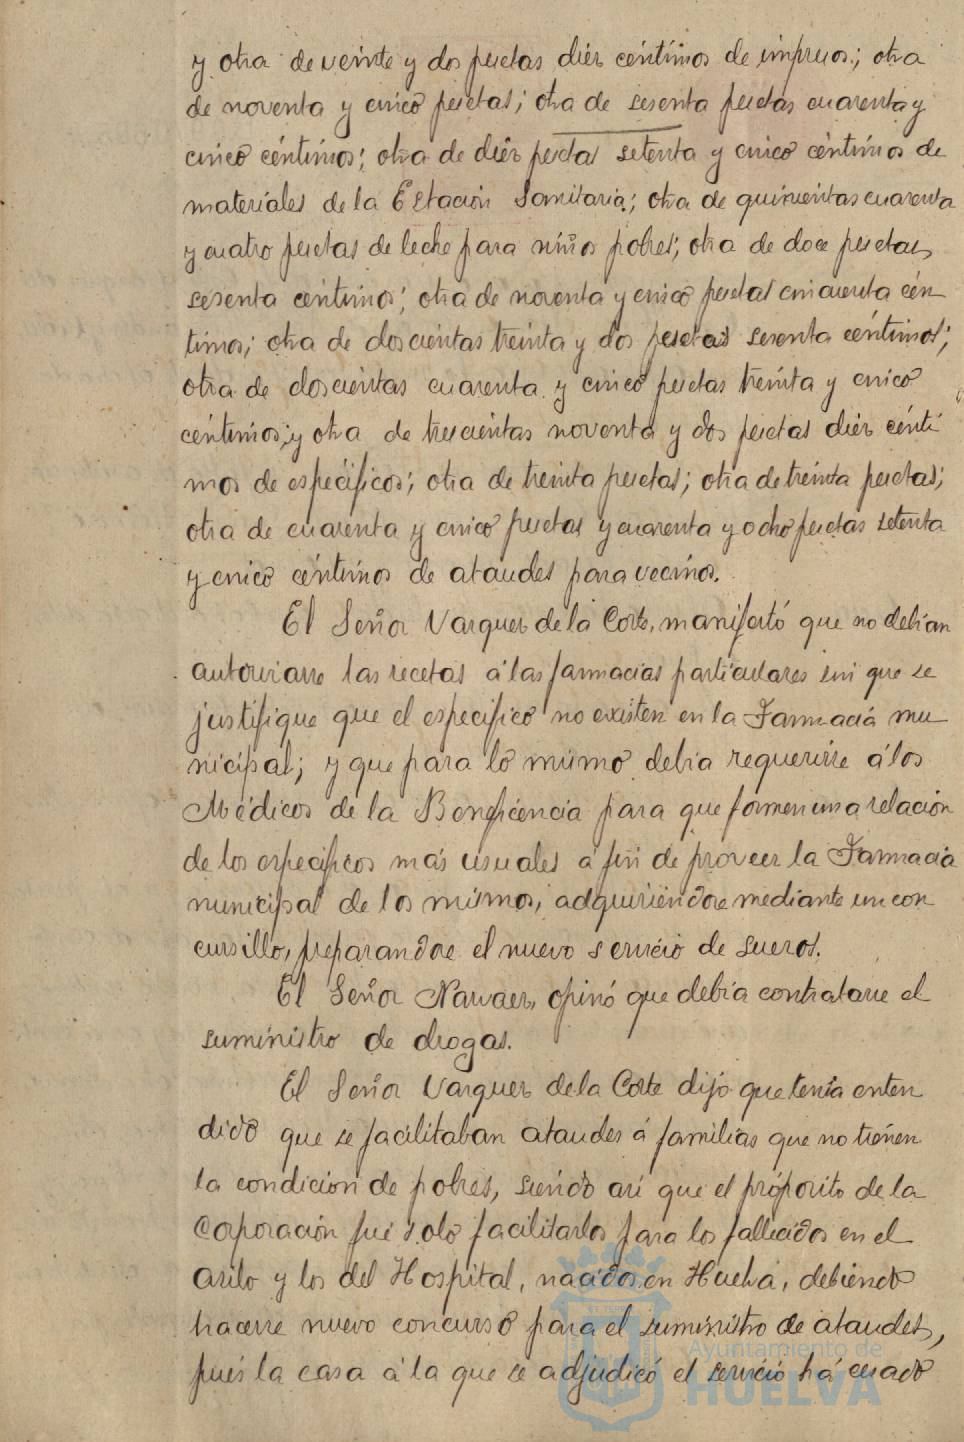 y otra de veinte y dos pesetas diez céntimos de impresos; otra
de noventa y cinco pesetas; otra de sesenta pesetas cuarenta y
cinco céntimos; otra de diez pesetas setenta y cinco céntimos de
materiales de la Estación Sanitaria; otra de quinientas cuarenta
y cuatro pesetas de leche para niños pobres; otra de doce pesetas
sesenta céntimos; otra de noventa y cinco pesetas cincuenta cén
timos; otra de doscientas treinta y dos pesetas sesenta céntimos;
otra de doscientas cuarenta y cinco pesetas treinta y cinco
céntimos; y otra de trescientas noventa y dos pesetas diez cénti
mos de específicos; otra de treinta pesetas; otra de treinta pesetas;
otra de cuarenta y cinco pesetas y cuarenta y ocho pesetas setenta
y cinco céntimos de ataudes para vecinos.
El Señor Vazquez de la Corte, manifestó que no debían
autorizarse las recetas á las farmacias particulares sin que se
justifique que el especifico no existen en la Farmacia mu
nicipal; y que para lo mismo debia requerirse á los
Médicos de la Beneficencia para que formen una relación
de los especificos más usuales a fin de proveer la Farmacia
municipal de los mismos, adquiriéndose mediante un con
cursillo, preparandose el nuevo servicio de sueros.
El Señor Narvaez, opinó que debía contratarse el
suministro de drogas.
El Señor Vazquez de la Corte dijo que tenía enten
dido que se facilitaban ataudes á familias que no tienen
la condición de pobres, siendo asi que el próposito de la
Corporación fué solo facilitarlos para los fallecidos en el
asilo y los del Hospital, nacidos en Huelva, debiendo
hacerse nuevo concurso para el suministro de ataudes,
pués la casa á la que se adjudicó el servicio há cesado
Ayuntamiento de
HUELVA